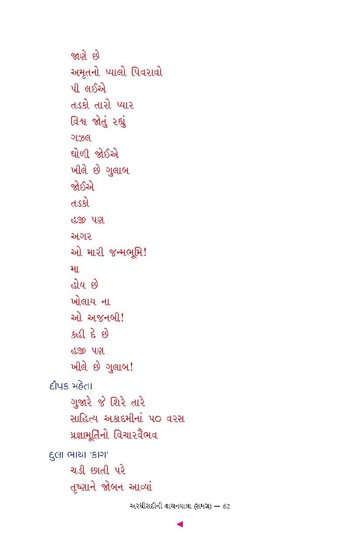 જાણે છે
અમૃતનો પ્યાલો પિવરાવો
પી લઈએ
તડકો તારો પ્યાર
વિશ્વ જોતું રહ્યું
ગઝલ
ઘોળી જોઈએ
ખીલે છે ગુલાબ
જોઈએ
તડકો
હજી પણ
અગર
ઓ મારી જન્મભૂમિ!
મા
હોય છે
ખોલાય ના
ઓ અજનબી!
કહી દે છે
હજી પણ
ખીલે છે ગુલાબ!
દીપક મહેતા
ગુજારે જે શિરે તારે
સાહિત્ય અકાદમીનાં ૫૦ વરસ
પ્રજ્ઞામૂર્તિનો વિચારવૈભવ
દુલા ભાયા 'કાગ'
ચડી છાતી પરે
તૃષ્ણાને જોબન આવ્યાં
અરધીસદીની વાચનયાત્રા (સમગ્ર) — 62